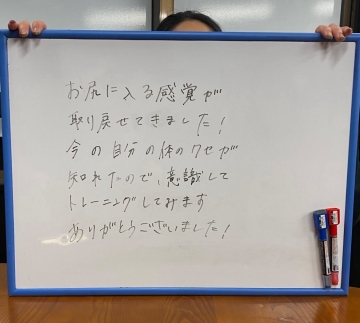 お尻に入る感覚が
取り戻せてきました!
今の自分の体のクセが
知れたので、意識して
トレーニングしてみます
ありがとうございました!